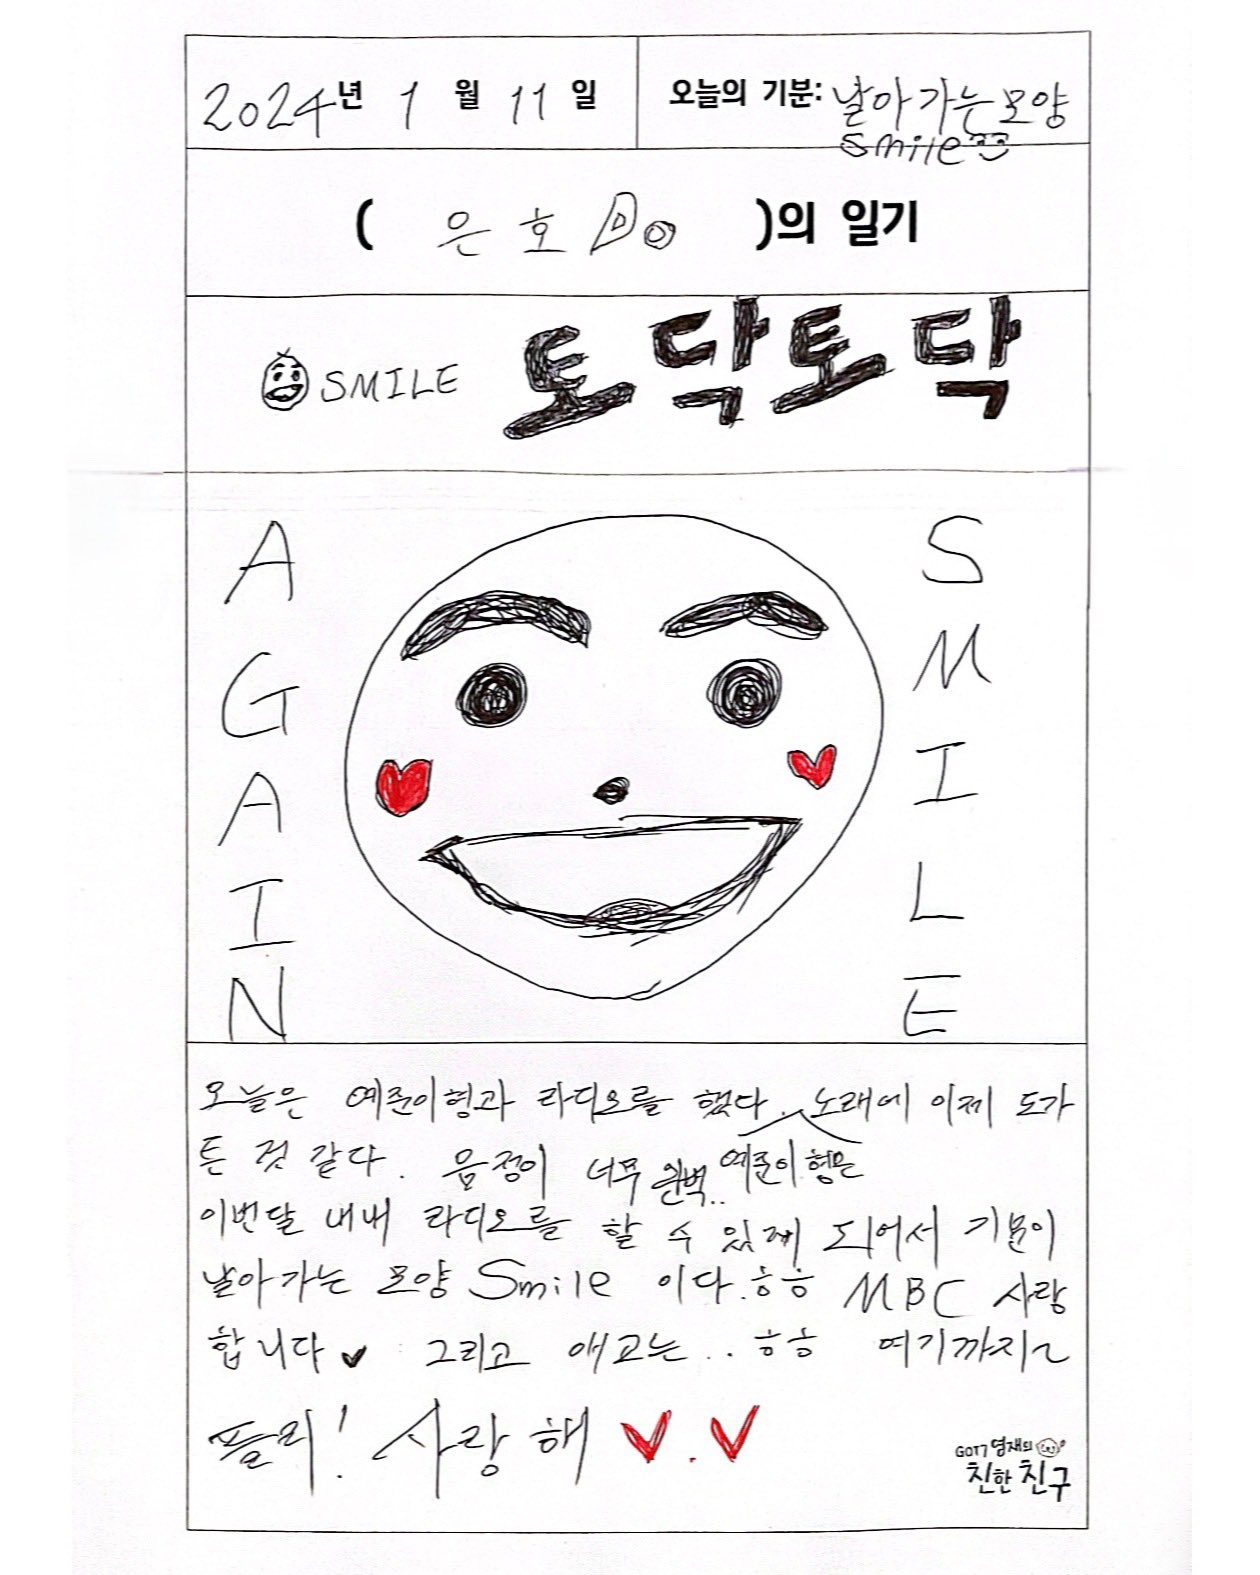 2024년 1월 11일
오늘의 기분: 날아가는모양
smile
( 은호 Do )의 일기
SMILE 토닥토닥
AGAIN
SMILE
오늘은 예준이형과 라디오를 했다. 노래에 이제 도가
튼 것 같다. 음정이 너무 완벽.. 예준이형은
이번달 내내 라디오를 할 수 있게 되어서 기분이
날아가는 모양 Smile 이다. ㅎㅎ MBC 사랑
합니다♥ 그리고 애교는.. ㅎㅎ 여기까지~
플리! 사랑해 ♥.♥
GOT7 영재의
친한친구